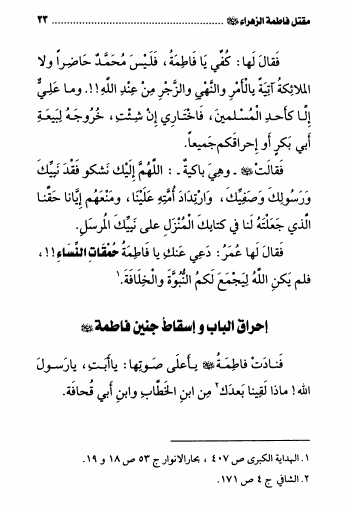 مقتل فاطمة الزهراء ................................................ ٢٣
فَقالَ لَها: كُفِّي يَا فَاطِمَةُ، فَلَيْسَ مُحَمَّدٌ حَاضِراً ولا
الملائكةُ آتِيَةً بِالْأَمْرِ والنَّهْيِ والزَّجْرِ مِنْ عِنْدِ اللهِ!!. وما عَلِيٌّ
إلّا كَأَحدِ الْمُسلمينَ، فَاخْتَارِي إنْ شِئْتِ، خُرُوجَهُ لِبَيعَةِ
أبي بَكرٍ أو إحراقَكم جَميعاً.
فَقالَتْ ـ وهيَ باكيةٌ ـ : اللهُمَّ إِلَيْكَ نَشكو فَقْدَ نَبِيِّكَ
وَرَسُولِكَ وَصَفِيِّكَ، وَارْتِدَادَ أُمَّتِهِ عَلَيْنَا، وَمَنْعَهُم إيَّانا حَقَّنا
الَّذي جَعَلْتَهُ لَنا في كتابِكَ الْمُنْزَلِ على نَبِيِّكَ المرسَلِ.
فَقالَ لَها عُمَرُ: دَعِي عَنكِ يا فاطِمَةُ حُمْقَاتِ النِّسَاءِ!!،
فلم يَكنِ اللهُ لِيَجْمَعَ لَكمُ النُّبُوَّةَ والْخِلَافَةَ.١
إحراق الباب و إسقاط جنين فاطمة
فَنادَتْ فاطِمَةُ بِأَعلَى صَوتِها: ياأبَتِ، يارَسولَ
اللهِ! ماذا لَقِينا بَعدَكَ٢ مِن ابنِ الخَطّابِ وابنِ أبي قُحافَة.
١. الهداية الكبرى ص ٤٠٧ ، بحارالانوار ج ٥٣ ص ١٨ و ١٩.
٢. الشافي ج ٤ ص ١٧١.